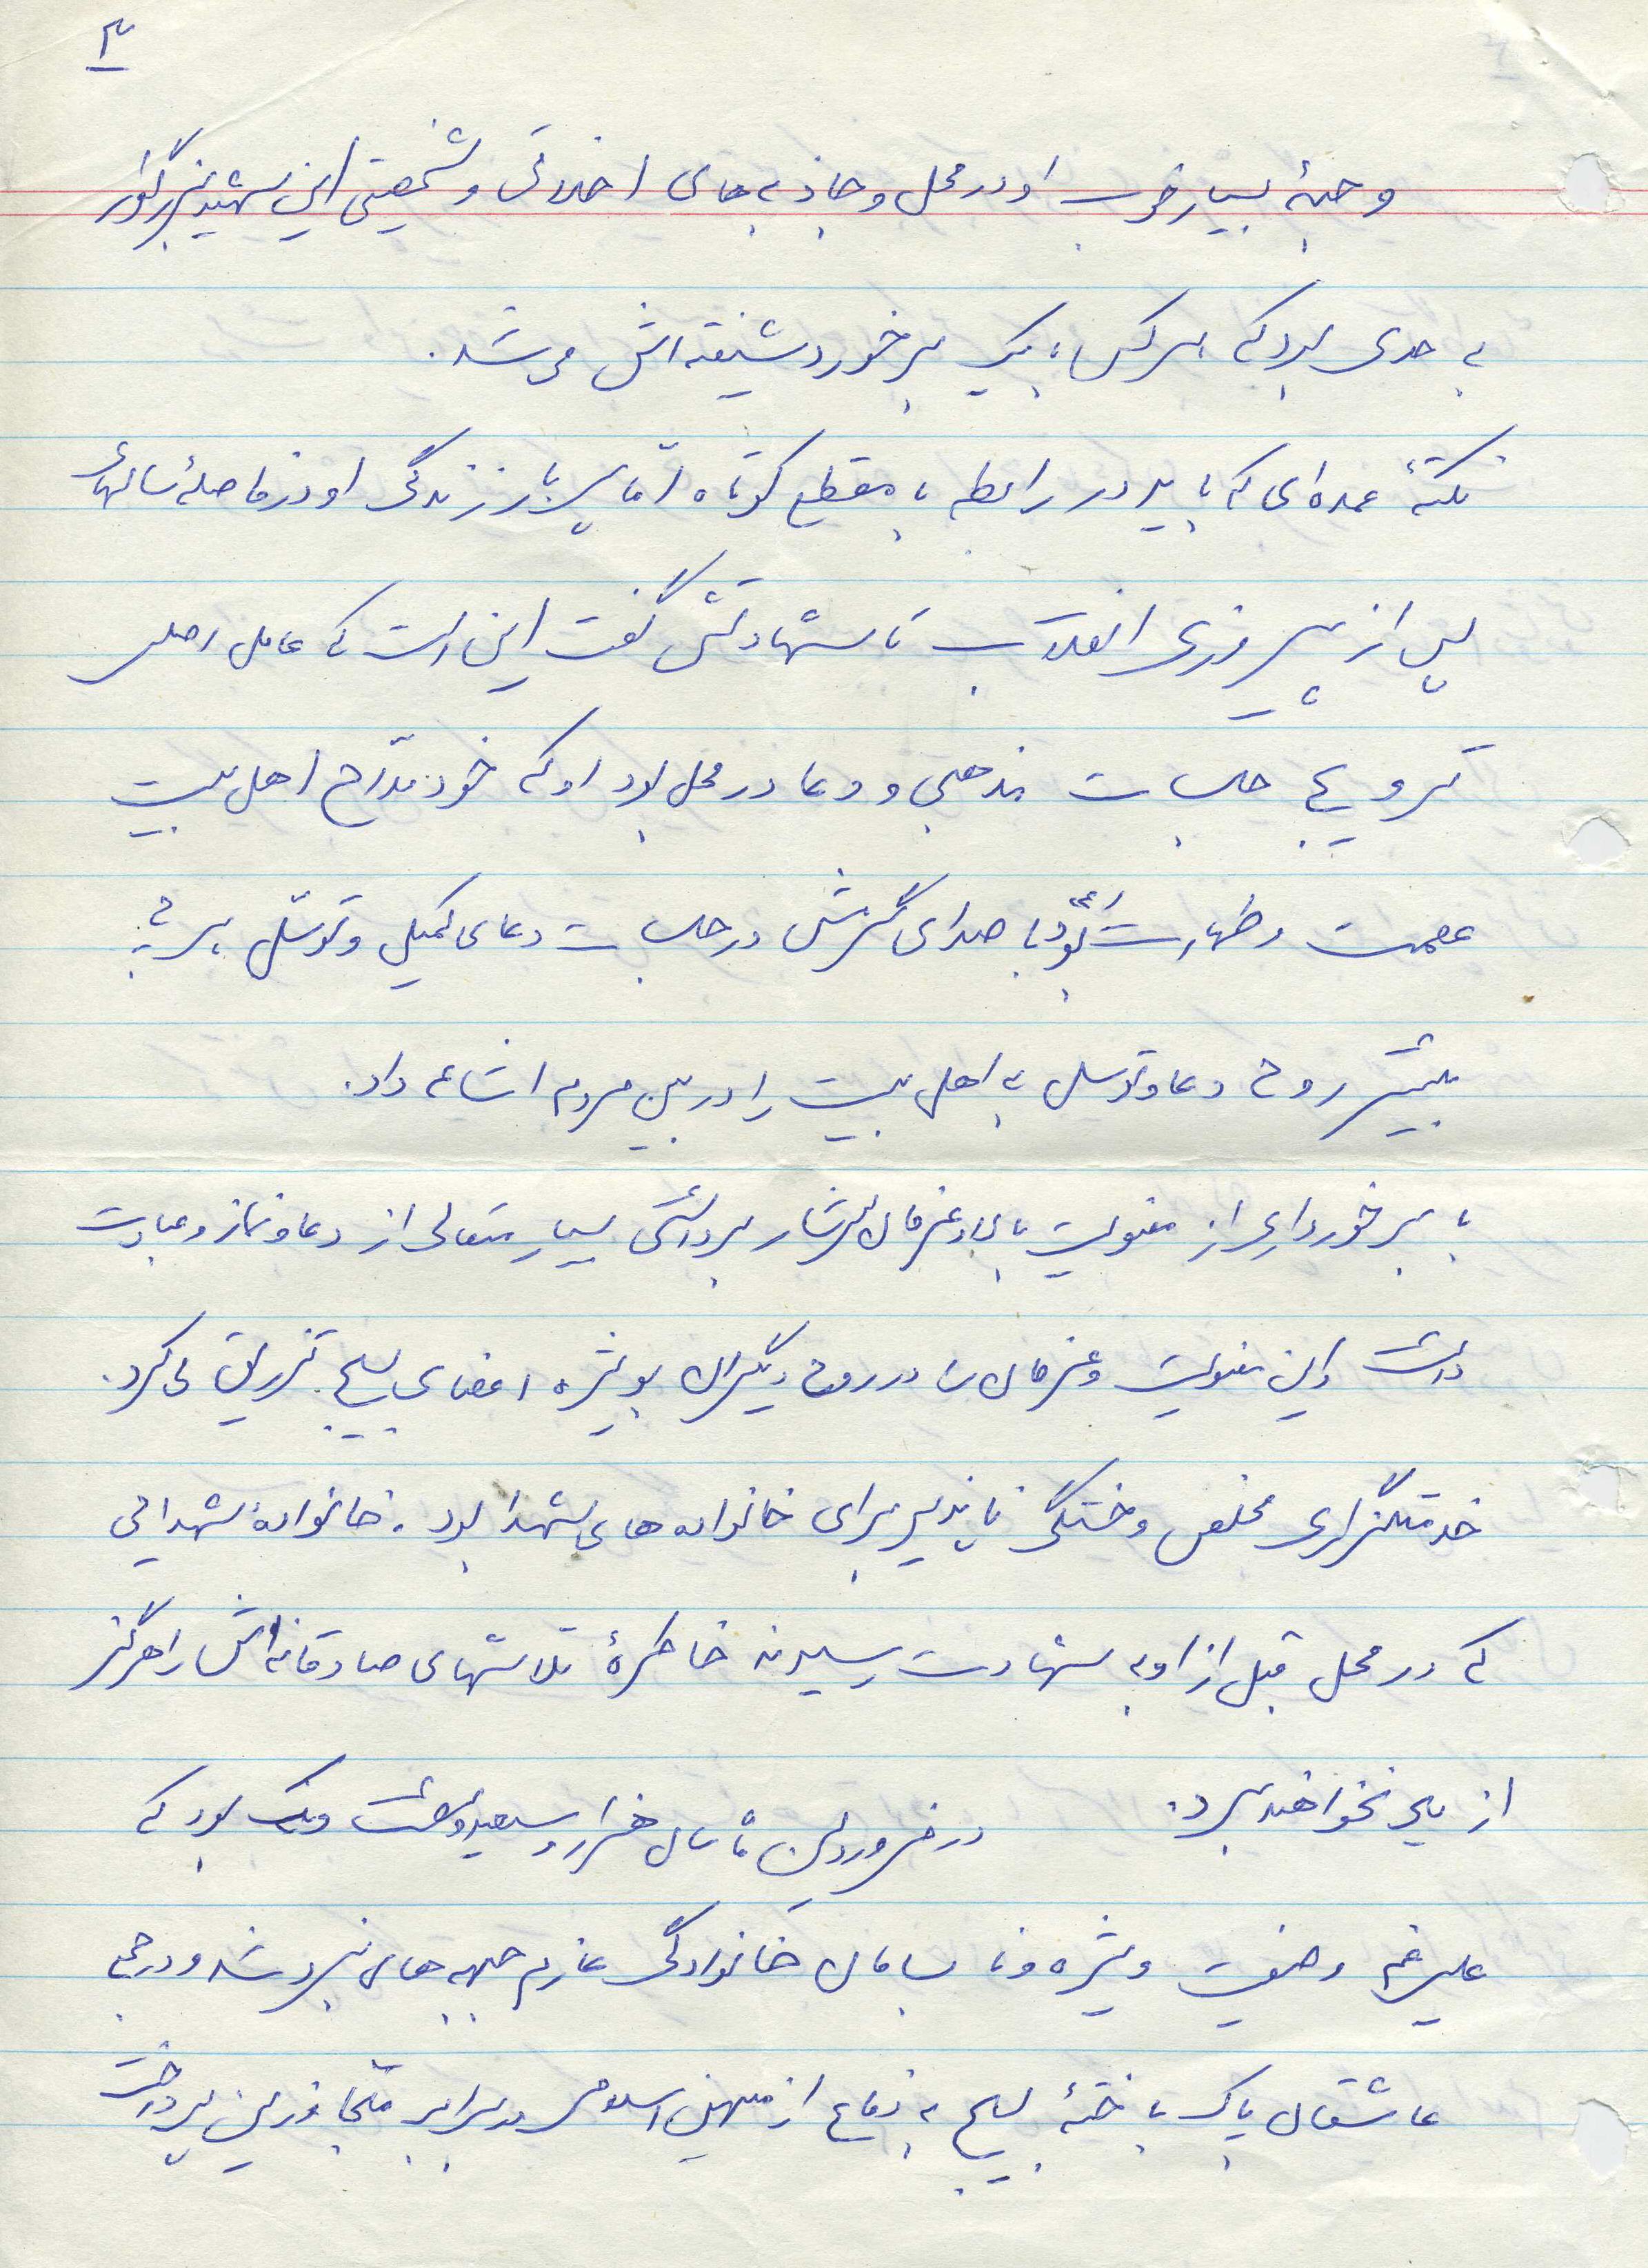 ۳
وجهۀ بسیار خوب او در محل و جاذبه‌های اخلاقی و شخصیتی این شهید بزرگوار
به حدی بود که هرکس با یک برخورد شیفته‌اش می‌شد.
نکتۀ عمده‌ای که باید در رابطه با مقطع کوتاه امّا پربار زندگی او در فاصلۀ سالهای
پس از پیروزی انقلاب تا شهادتش گفت این است که عامل اصلی
ترویج جلسات مذهبی و دعا در محل بود او که خود مدّاح اهل بیت
عصمت و طهارت (ع) بود با صدای گرمش در جلسات دعای کمیل و توسّل هر چه
بیشتر روح دعا و توسل به اهل بیت را در بین مردم اشاعه داد.
با برخورداری از معنویت بالا و عرفان سرشار برداشتی بسیار متعالی از دعا و نماز و عبادت
داشت و این معنویت و عرفان را در روح دیگران بویژه اعضای بسیج تزریق می‌کرد.
خدمتگزاری مخلص و خستگی ناپذیر برای خانواده‌های شهدا بود. خانوادۀ شهدائی
که در محل قبل از او به شهادت رسیدند خاطرۀ تلاشهای صادقانه‌اش را هرگز
از یاد نخواهند برد. در فروردین ماه سال هزار و سیصد و شصت و یک بود که
علیرغم وضعیت ویژه و نابسامان خانوادگی عازم جبهه‌های نبرد شد و در جمع
عاشقان پاک باختۀ بسیج به دفاع از میهن اسلامی در برابر متجاوزین پرداخت